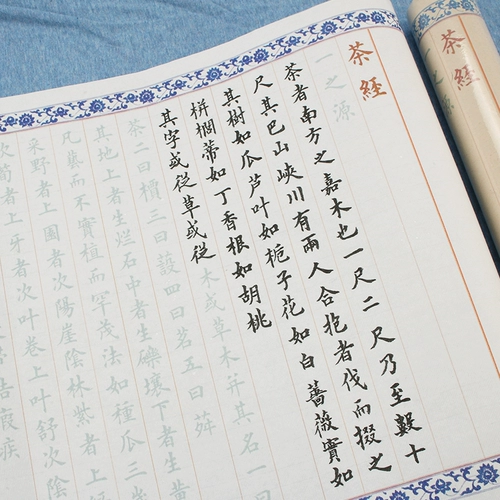 茶經
一之源
茶經
一之源
茶者南方之嘉木也一尺二尺乃至數十
尺其巴山峽川有兩人合抱者伐而掇之
其樹如瓜芦叶如栀子花如白薔薇實如
栟櫚蒂如丁香根如胡桃
其字或從草或從木或草木并其名一曰
茶二曰檟三曰蔎四曰茗五曰荈
其地上者生烂石中者生礫壤下者生黄
凡藝而不實植而罕茂法如種瓜三
采野者上園者次陽崖陰林紫者上
次筍者上牙者次叶卷上叶舒次
瘕疾